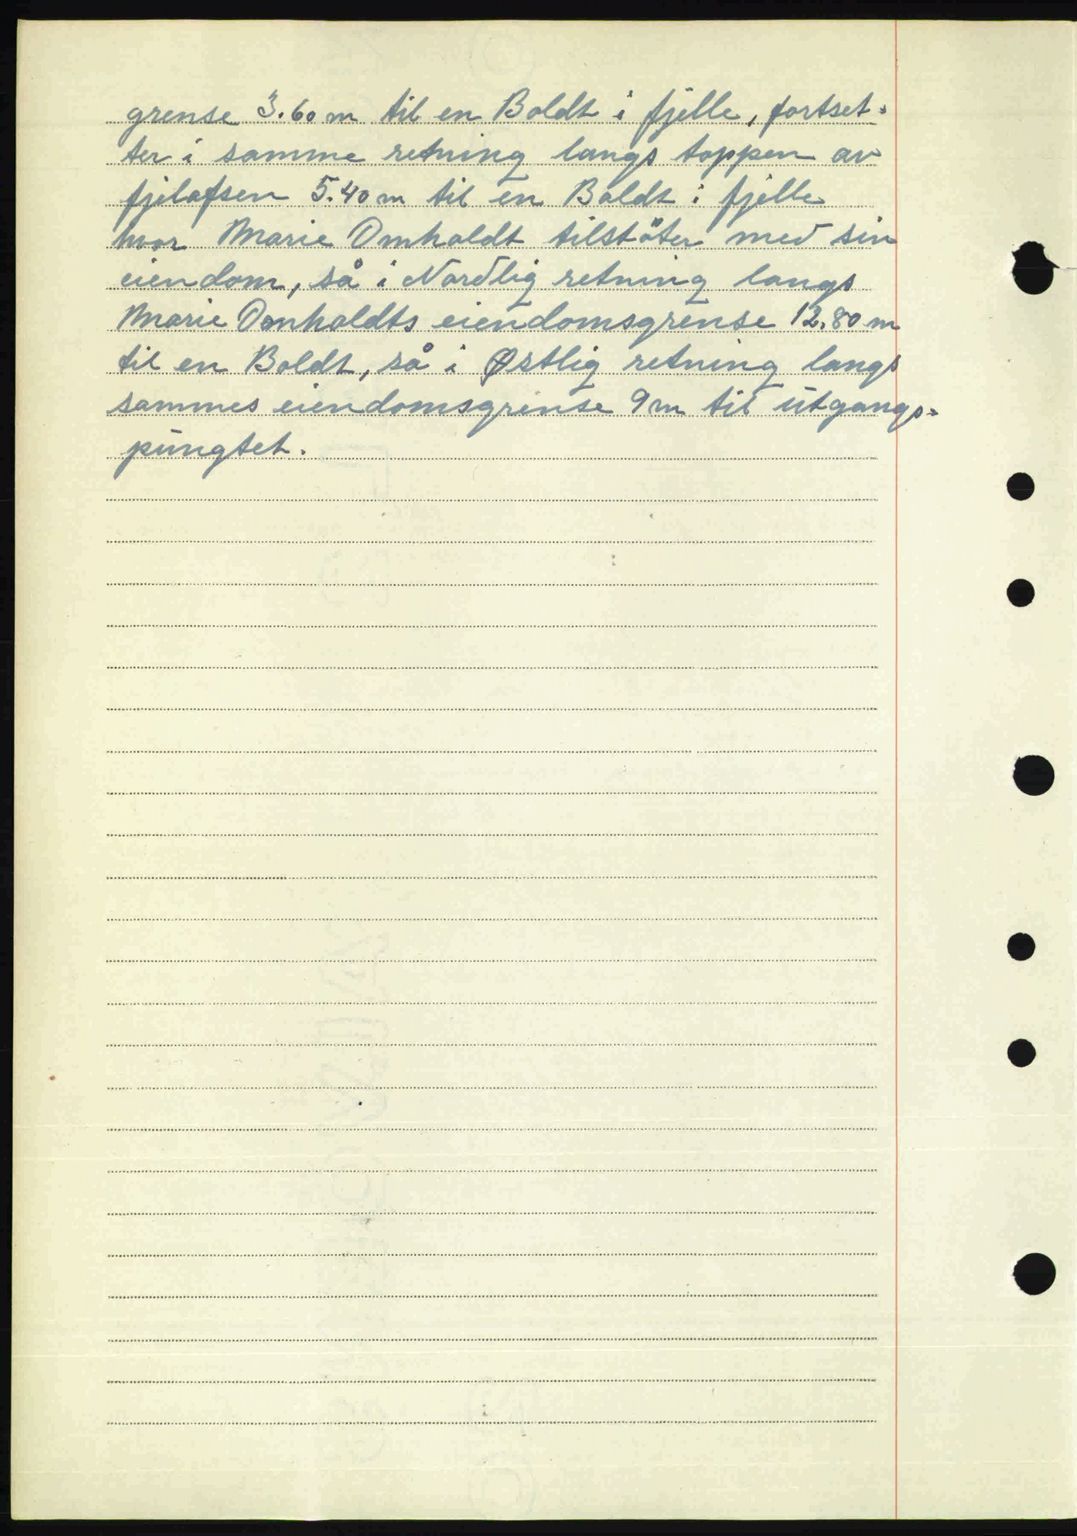 grense 3.60 m til en Boldt i fjelle, fortset-
ter i samme retning langs toppen av
fjelafsen 5.40 m til en Boldt i fjelle
hvor Marie Omholdt tilstöter med sin
eiendom, så i Nordlig retning langs
Marie Omholdts eiendomsgrense 12.80 m
til en Boldt, så i Østlig retning langs
sammes eiendomsgrense 9 m til utgangs-
pungtet.